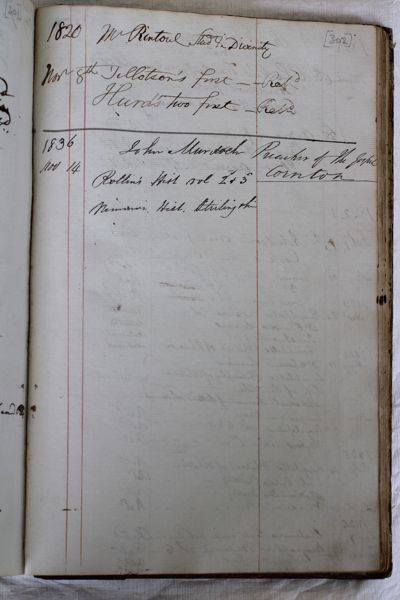 [302]
1820 Mr Rintoul Stud in Divinity
Novr 8th Tillotson's first — Retd
Hurd's two first — Retd
1836 John Murdoch Preacher of the Gospel
Nov 14 Cornton
Rollin's Hist vol 2 & 5
Nimmo's Hist. Stirlingsh